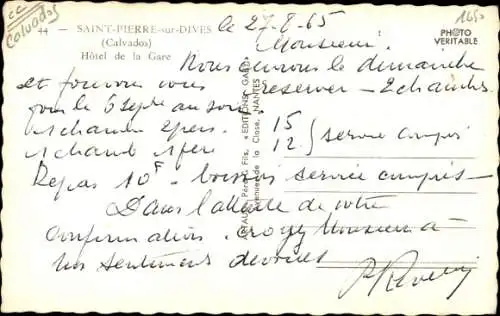 cc
Calvados
44 — SAINT-PIERRE-sur-DIVES
(Calvados)
Hôtel de la Gare
1650
PHOTO
VERITABLE
le 27-8-65
Monsieur.
Nous le dimanche
et pouvons vous réserver — 2 chambres
pour le 5 Septe au soir
1 chambre 2 pers. 15
1 chamb 1 pers 12 } service compris
Repas 10F — boisson service compris —
Dans l'attente de votre
confirmation. croyez Monsieur à
nos sentiments dévoués
Père & Fils, «EDITIONS GABY»
avenue de la Close, NANTES